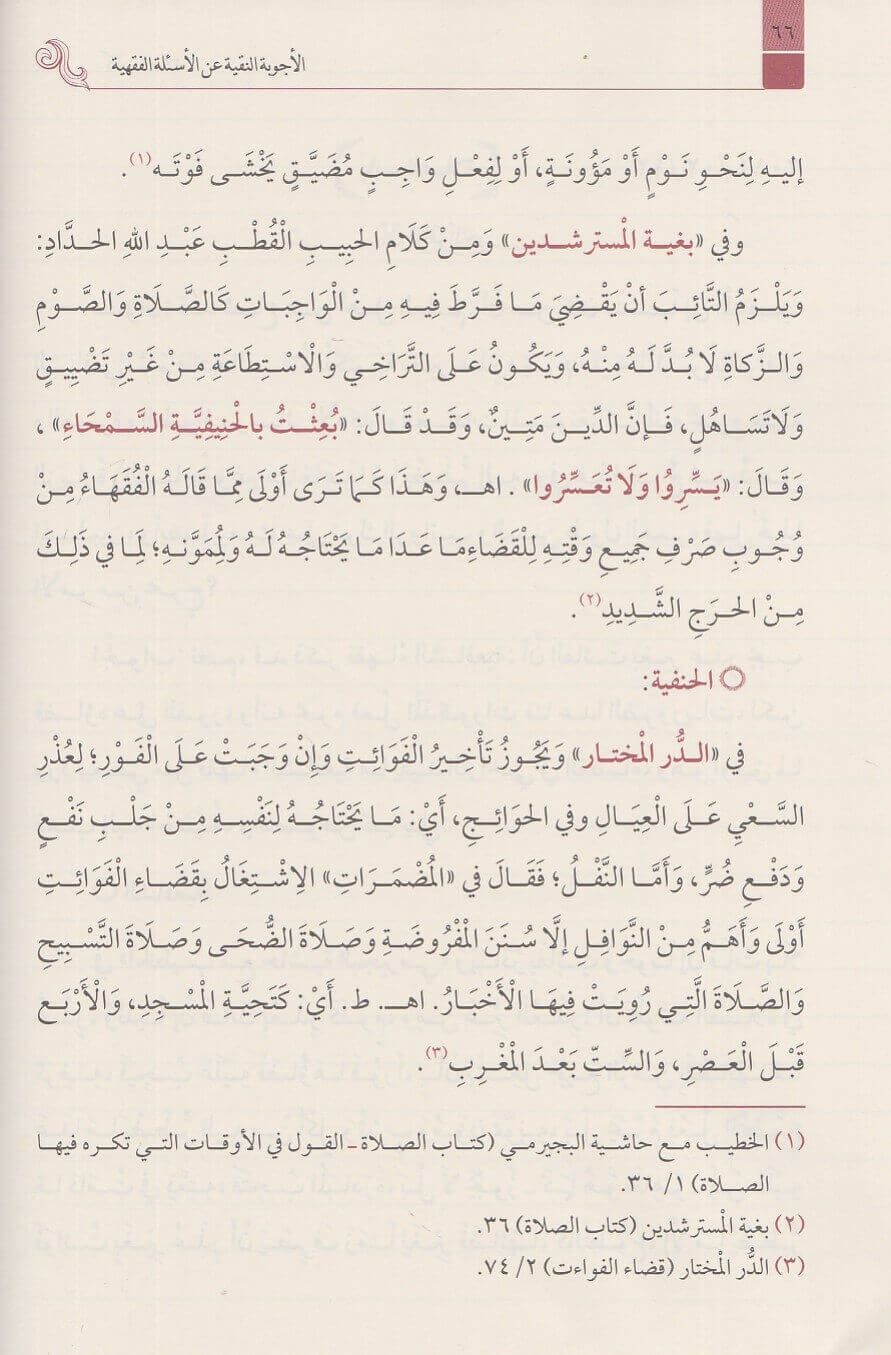 ٦٦
الأجوبة النقية عن الأسئلة الفقهية
إليهِ لِنَحْوِ نَوْمٍ أَوْ مَؤُونَةٍ، أَوْ لِفِعْلِ وَاجِبٍ مُضَيَّقٍ يَخْشَى فَوْتَه(١).
وفي «بغية الْمسترشدين» وَمِنْ كَلَامِ الحبِيبِ الْقُطْبِ عَبْدِ اللهِ الحدَّادِ:
وَيَلْزَمُ التَّائِبَ أنْ يَقْضِيَ مَا فَرَّطَ فِيهِ مِنْ الْوَاجِبَاتِ كَالصَّلَاةِ وَالصَّوْمِ
وَالزَّكاةِ لَا بُدَّ لَهُ مِنْهُ، وَيَكُونُ عَلَى التَّرَاخِي وَالْاسْتِطَاعَةِ مِنْ غَيْرِ تَضْيِيقٍ
وَلَاتَسَاهُلٍ، فَإنَّ الدِّينَ مَتِينٌ، وَقَدْ قَالَ: «بُعِثْتُ بالْحَنِيفِيَّةِ السَّمْحَاءِ» ،
وَقَالَ: «يَسِّرِوُا وَلَا تُعَسِّرُوا» . اهـ، وَهَذَا كَمَا تَرَى أَوْلَى مِمَّا قَالَهُ الْفُقَهَاءُ مِنْ
وُجُوبِ صَرْفِ جَمِيعِ وَقْتِهِ لِلْقَضَاءِ مَا عَدَا مَا يَحْتَاجُهُ لَهُ وَلِمُمَوَّنَهِ؛ لِمَا في ذَلِكَ
مِنْ الحرَجِ الشَّدِيدِ(٢).
الحنفية:
في «الدُّر الْمختار» وَيَجُوزُ تَأْخِيرُ الْفَوَائِتِ وَإِنْ وَجَبَتْ عَلَى الْفَوْرِ؛ لِعُذْرِ
السَّعْيِ عَلَى الْعِيَالِ وفي الحوَائِجِ، أَيْ: مَا يَحْتَاجُهُ لِنَفْسِهِ مِنْ جَلْبِ نَفْعٍ
وَدَفْعِ ضُرٍّ، وَأَمَّا النَّفْلُ؛ فَقَالَ في «المُضْمَرَاتِ» الِاشْتِغَالُ بِقَضَاءِ الْفَوَائِتِ
أَوْلَى وَأَهَمُّ مِنْ النَّوَافِلِ إلَّا سُنَنَ الْمَفْرُوضَةِ وَصَلَاةَ الضُّحَى وَصَلَاةَ التَّسْبِيحِ
وَالصَّلَاةَ الَّتِي رُوِيَتْ فِيهَا الْأَخْبَارُ. اهـ. ط. أَيْ: كَتَحِيَّةِ الْمَسْجِدِ، وَالْأَرْبَعِ
قَبْلَ الْعَصْرِ، وَالسِّتّ بَعْدَ الْمَغْرِبِ(٣).
(١) الخطيب مع حاشية البجيرمي (كتاب الصلاة ـ القول في الأوقات التي تكره فيها
الصلاة) ١/ ٣٦.
(٢) بغية الْمسترشدين (كتاب الصلاة) ٣٦.
(٣) الدُّر الْمختار (قضاء الفواءت) ٢/ ٧٤.